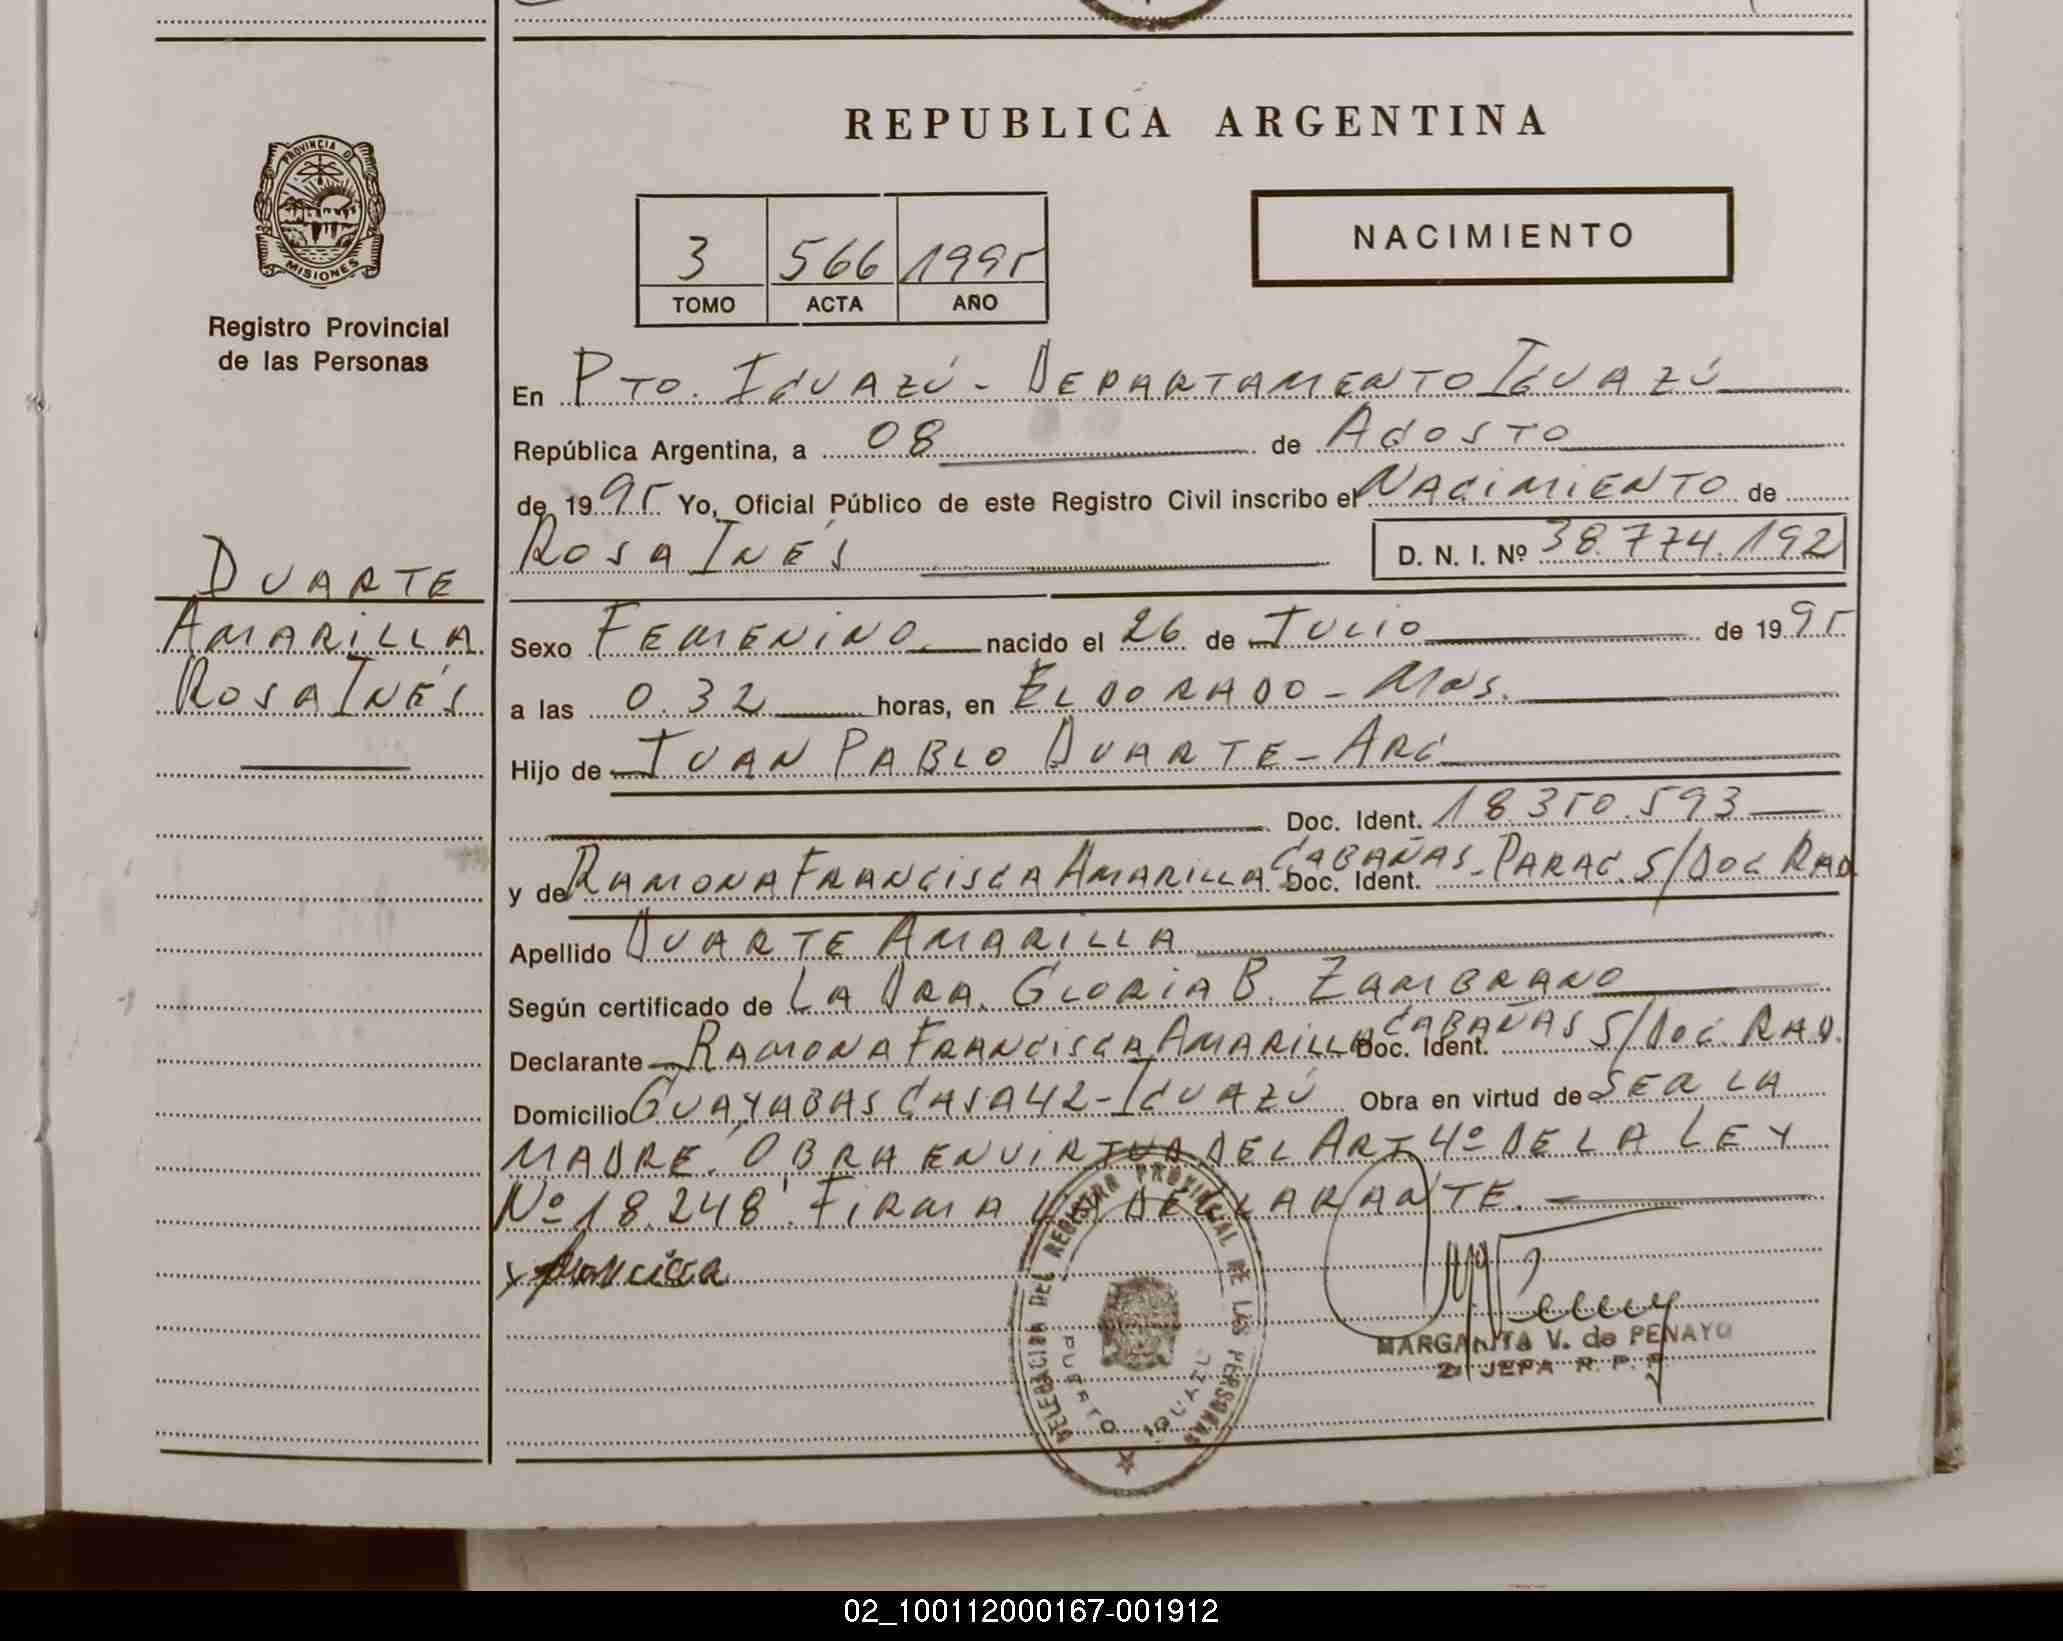 REPUBLICA ARGENTINA
PROVINCIA D
MISIONES
Registro Provincial
de las Personas
3 566 1995
TOMO ACTA AÑO
NACIMIENTO
En Pto. Iguazú - Departamento Iguazú
República Argentina, a 08 de Agosto
de 1995 Yo, Oficial Público de este Registro Civil inscribo el Nacimiento de
Rosa Inés D. N. I. Nº 38.774.192
Duarte
Amarilla
Rosa Inés
Sexo Femenino nacido el 26 de Julio de 1995
a las 0.32 horas, en Eldorado - Mns.
Hijo de Juan Pablo Duarte - Arg
Doc. Ident. 18.350.593
y de Ramona Francisca Amarilla Cabañas - Parag. Doc. Ident. S/Doc Rad
Apellido Duarte Amarilla
Según certificado de La Dra. Gloria B. Zambrano
Declarante Ramona Francisca Amarilla Cabañas Doc. Ident. S/Doc. Rad.
Domicilio Guayabas Casa 42 - Iguazú Obra en virtud de ser la
madre. "Obra en virtud del Art 4º de la Ley
Nº 18.248". Firma la declarante.
x Francisca
DELEGACION DEL REGISTRO PROVINCIAL DE LAS PERSONAS
PUERTO IGUAZU
MARGARITA V. de PENAYO
2ª JEFA R. P. P.
02_100112000167-001912